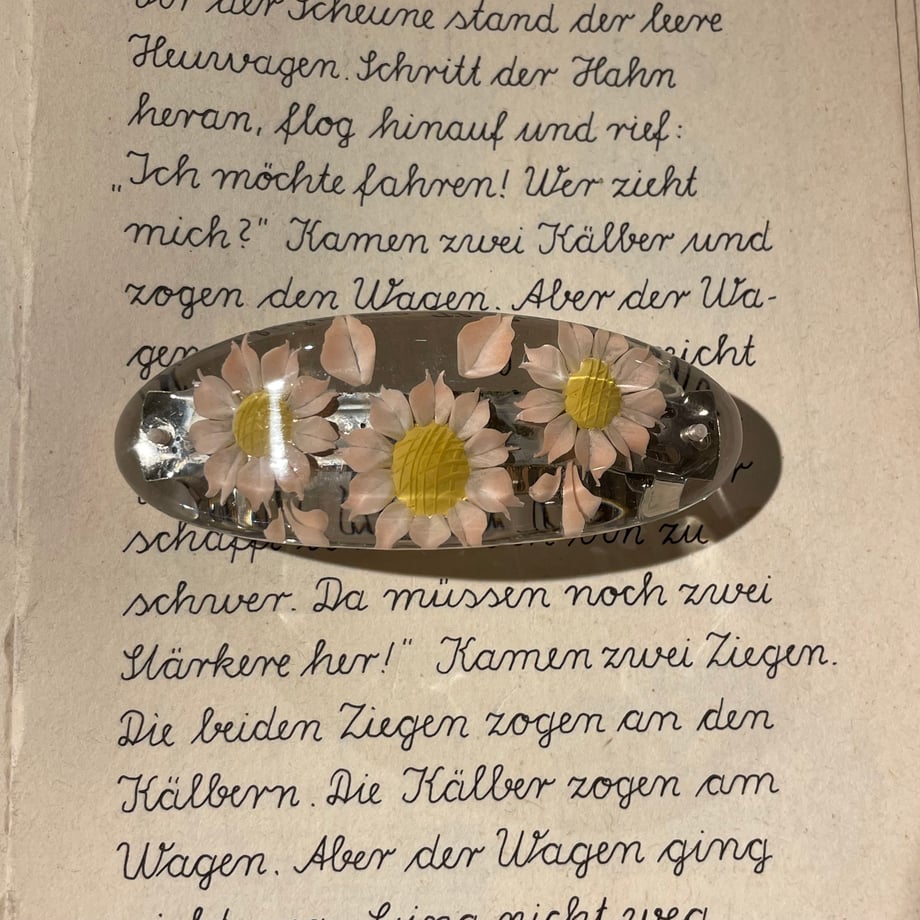 Vor der Scheune stand der leere
Heuwagen. Schritt der Hahn
heran, flog hinauf und rief:
„Ich möchte fahren! Wer zieht
mich?" Kamen zwei Kälber und
zogen den Wagen. Aber der Wa-
gen nicht
zu
schwer. Da müssen noch zwei
Stärkere her!" Kamen zwei Ziegen.
Die beiden Ziegen zogen an den
Kälbern. Die Kälber zogen am
Wagen. Aber der Wagen ging
nicht weg